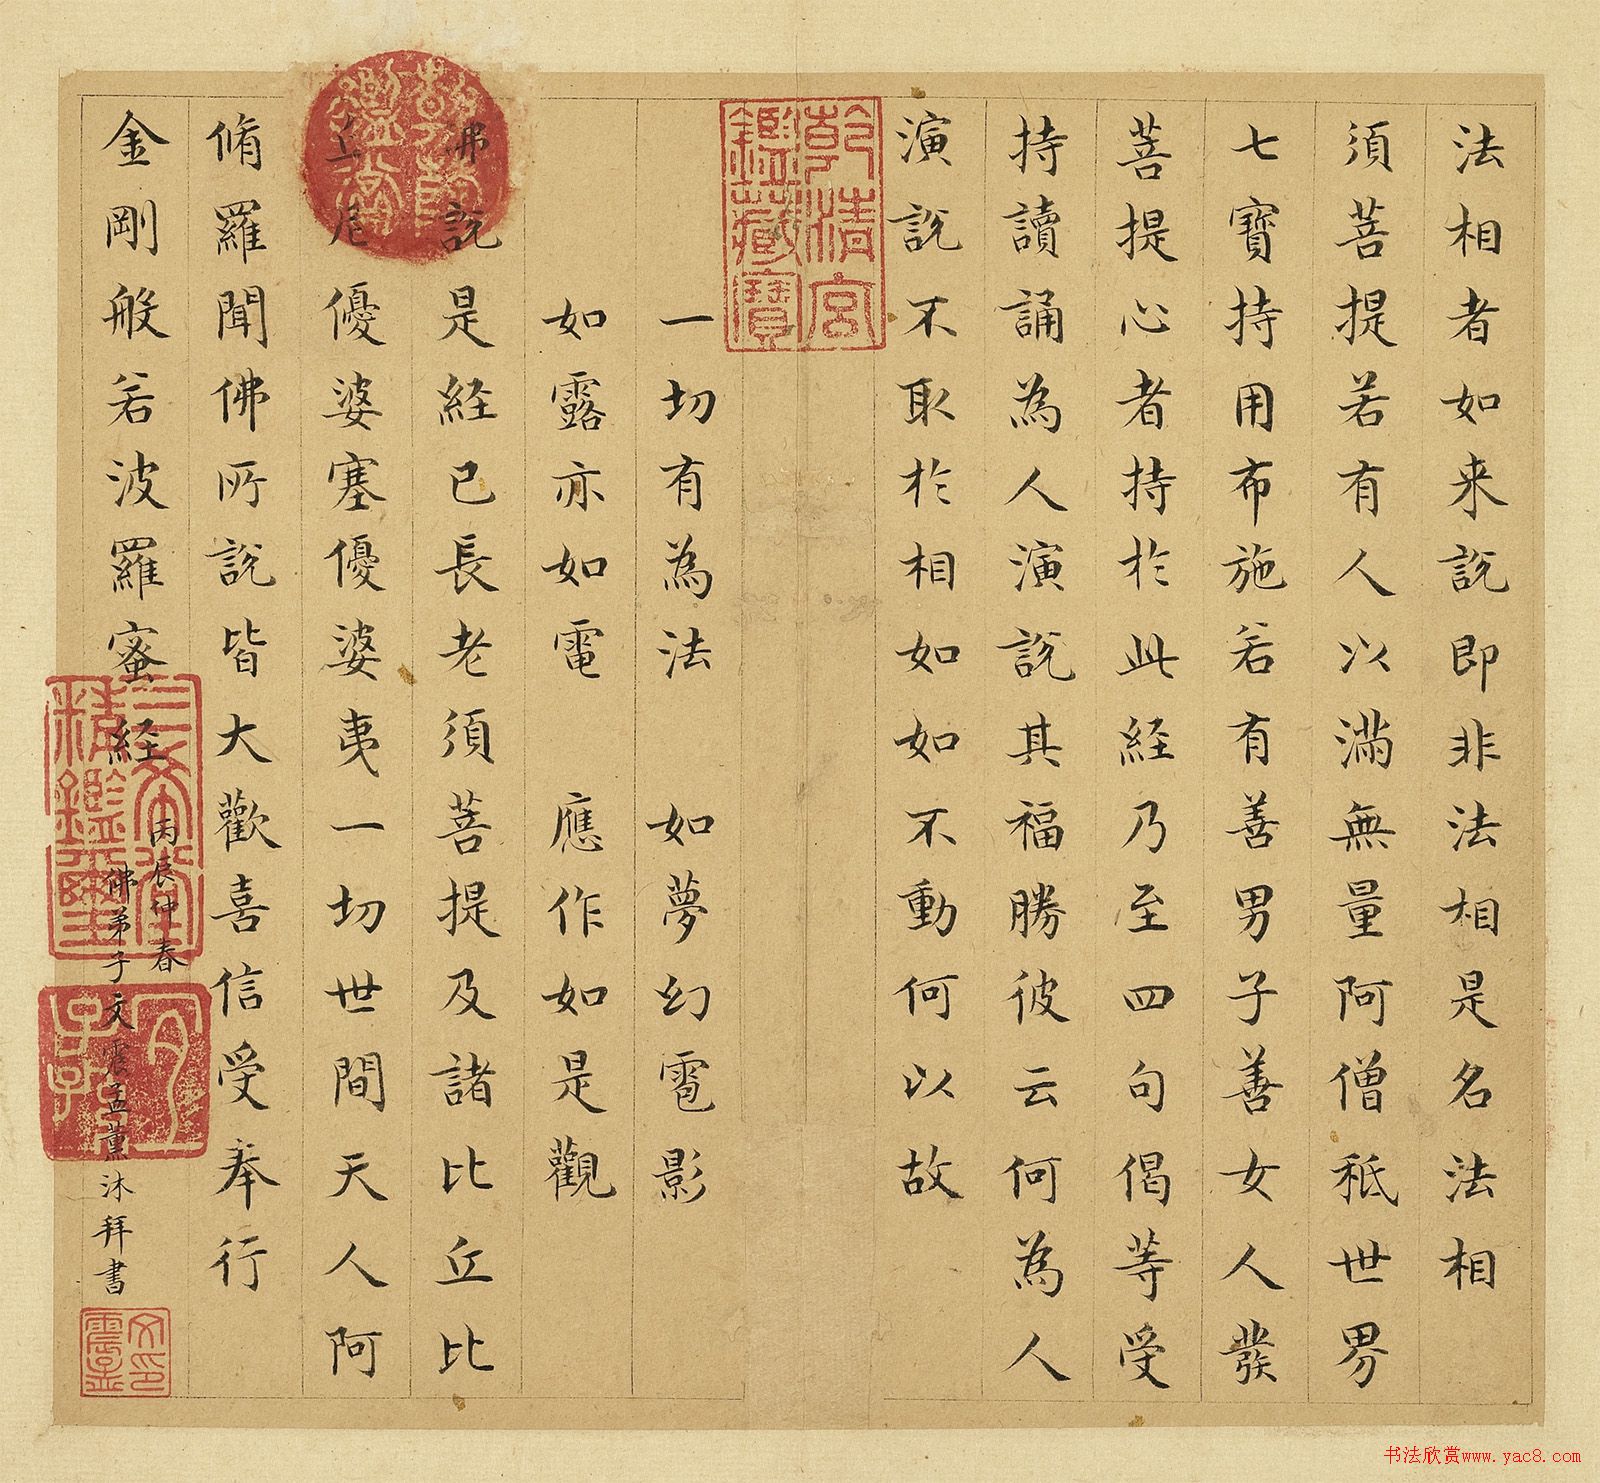 法相者如来説即非法相是名法相
須菩提若有人以滿無量阿僧秖世界
七寶持用布施若有善男子善女人發
菩提心者持於此経乃至四句偈等受
持讀誦為人演説其福勝彼云何為人
演説不取於相如如不動何以故
一切有為法 如夢幻雹影
如露亦如電 應作如是觀
佛説是経已長老須菩提及諸比丘比
丘尼優婆塞優婆夷一切世間天人阿
脩羅聞佛所説皆大歡喜信受奉行
金剛般若波羅蜜経
丙辰仲春
佛弟子文震孟薰沐拜書
乾清宮
鑑藏寶
嘉慶
鑑賞
三希堂
精鑑璽
宜子孫
文印
震孟
书法欣赏www.yac8.com